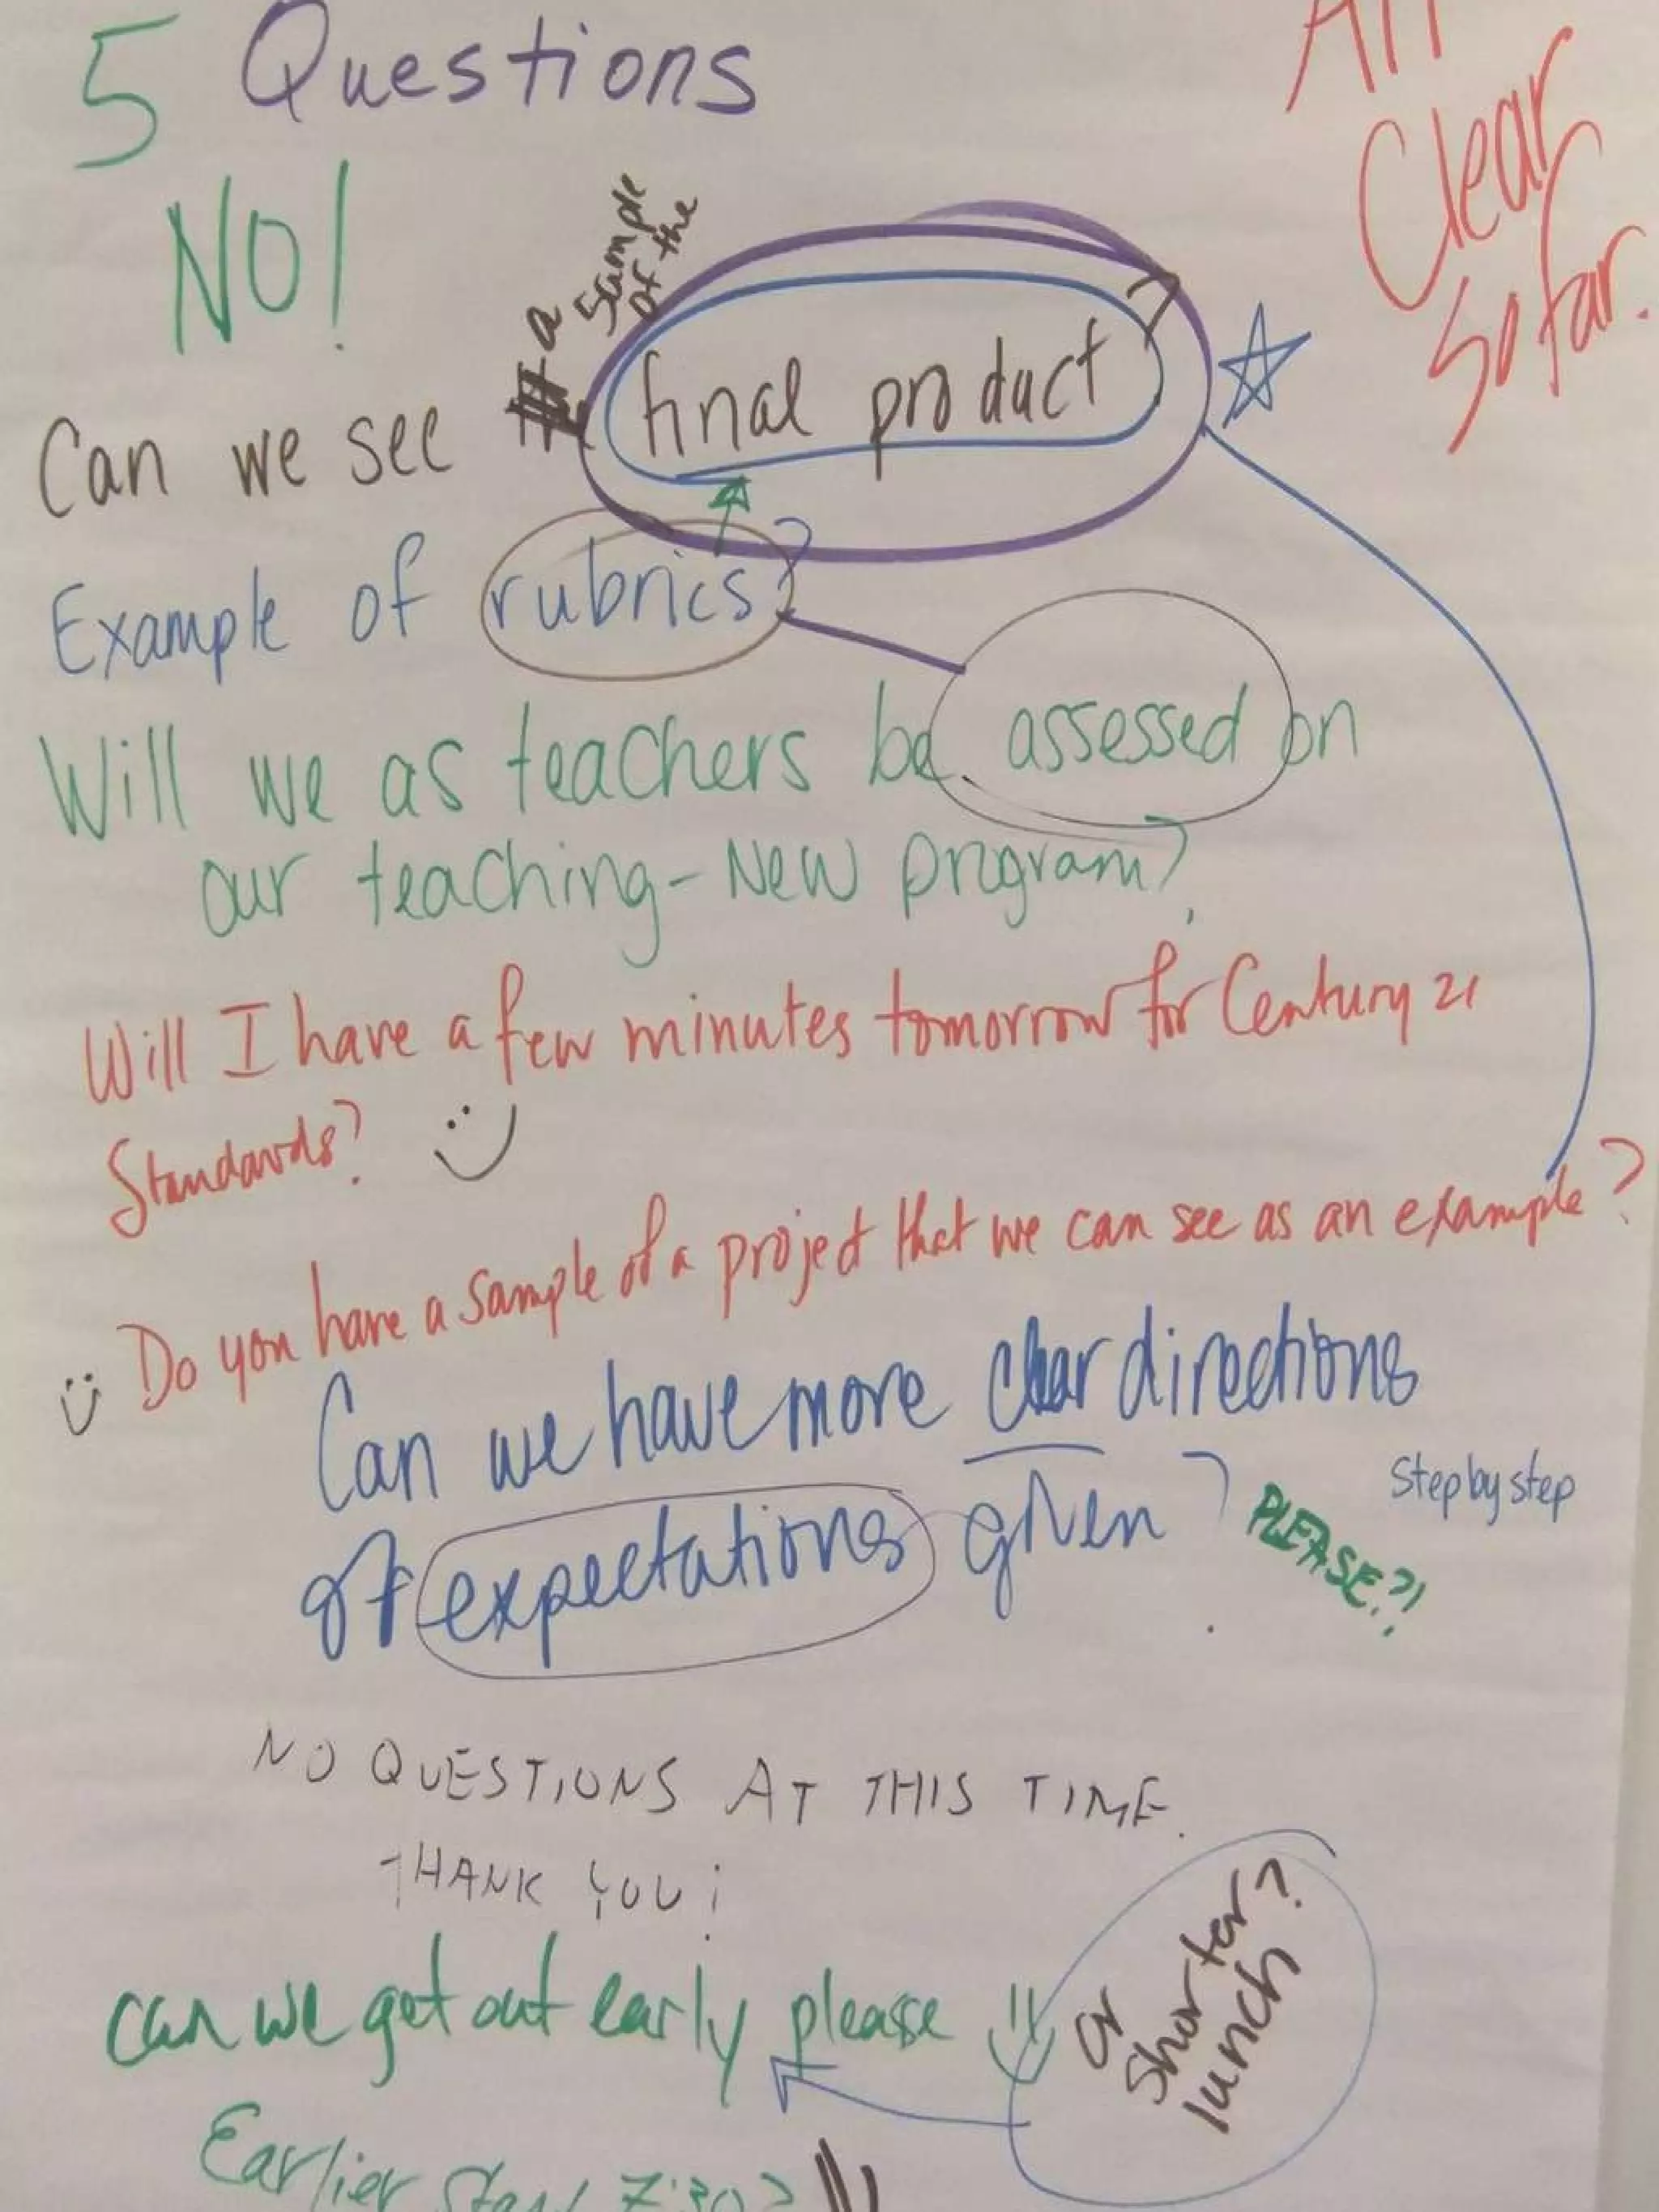 5 Questions
All
Clear
So far.
NO!
a
Sample
of the
Can we see final product?
Example of rubrics?
Will we as teachers be assessed on
our teaching - New program?
Will I have a few minutes tomorrow for Century 21
Standards?
Do you have a sample of a project that we can see as an example?
Can we have more clear directions
of expectations given?
Step by step
PLEASE?!
NO QUESTIONS AT THIS TIME.
THANK YOU!
can we get out early please
or
shorter?
lunch
Earlier Start 7:30?